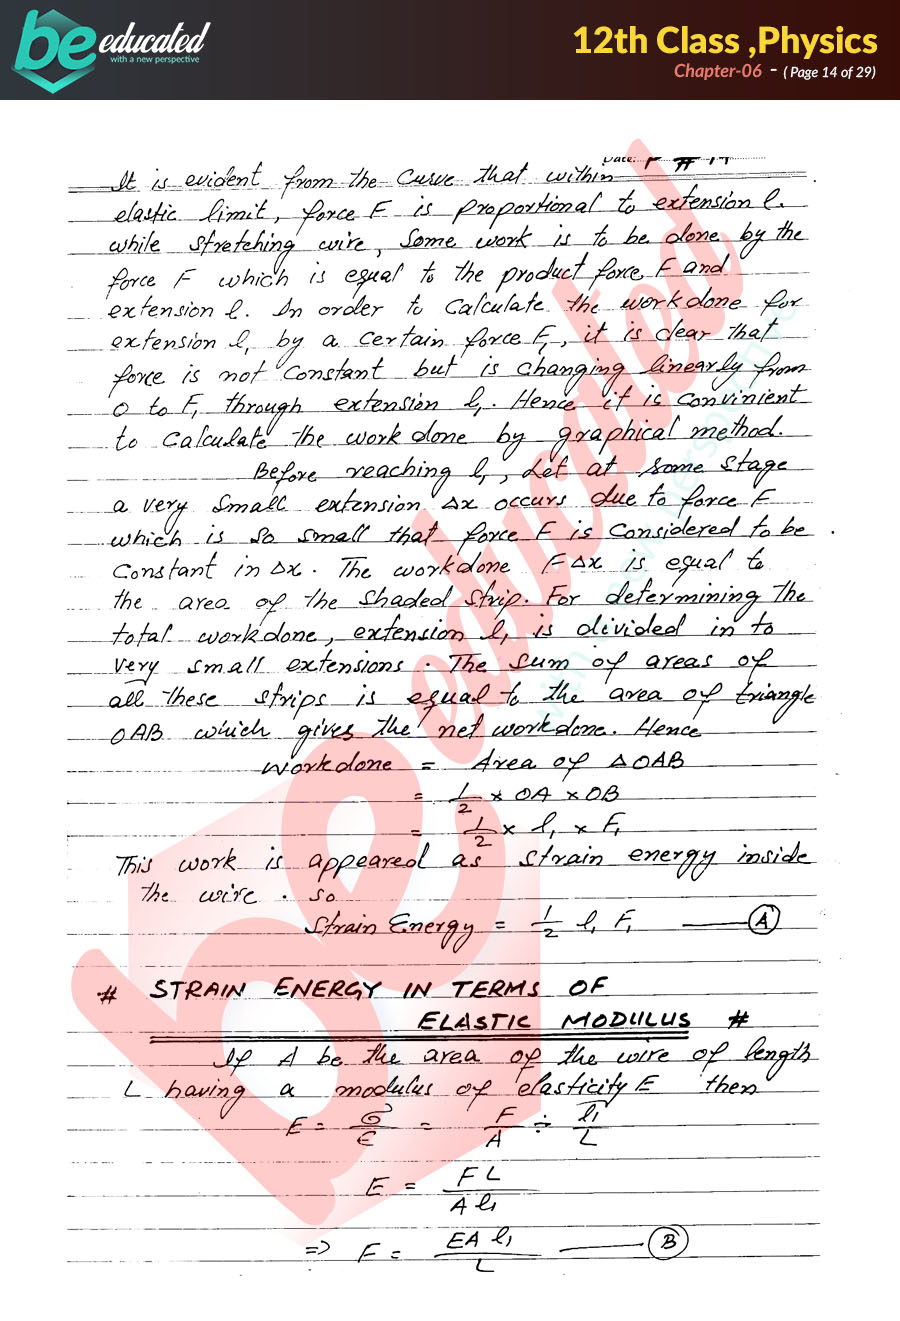 be educated
with a new perspective
12th Class ,Physics
Chapter-06 - ( Page 14 of 29)
Date:
It is evident from the Curve that within
elastic limit, force F is proportional to extension l.
while stretching wire, Some work is to be done by the
force F which is equal to the product force F and
extension l. In order to Calculate the workdone for
extension l₁ by a certain force F₁, it is clear that
force is not Constant but is changing linearly from
0 to F₁ through extension l₁. Hence it is convinient
to Calculate the work done by graphical method.
Before reaching l₁, Let at some stage
a very small extension Δx occurs due to force F
which is so small that force F is Considered to be
Constant in Δx. The workdone FΔx is equal to
the area of the shaded strip. For determining the
total workdone, extension l₁ is divided in to
very small extensions. The sum of areas of
all these strips is equal to the area of triangle
OAB which gives the net workdone. Hence
Workdone = Area of ΔOAB
= 1/2 × OA × OB
= 1/2 × l₁ × F₁
This work is appeared as strain energy inside
the wire. so
Strain Energy = 1/2 l₁ F₁ —— (A)
# STRAIN ENERGY IN TERMS OF
ELASTIC MODULUS #
If A be the area of the wire of length
L having a modulus of elasticity E then
E = σ/ε = F/A ÷ l₁/L
E = FL/A l₁
=> F = EA l₁/L —— (B)
be educated
with a new perspective